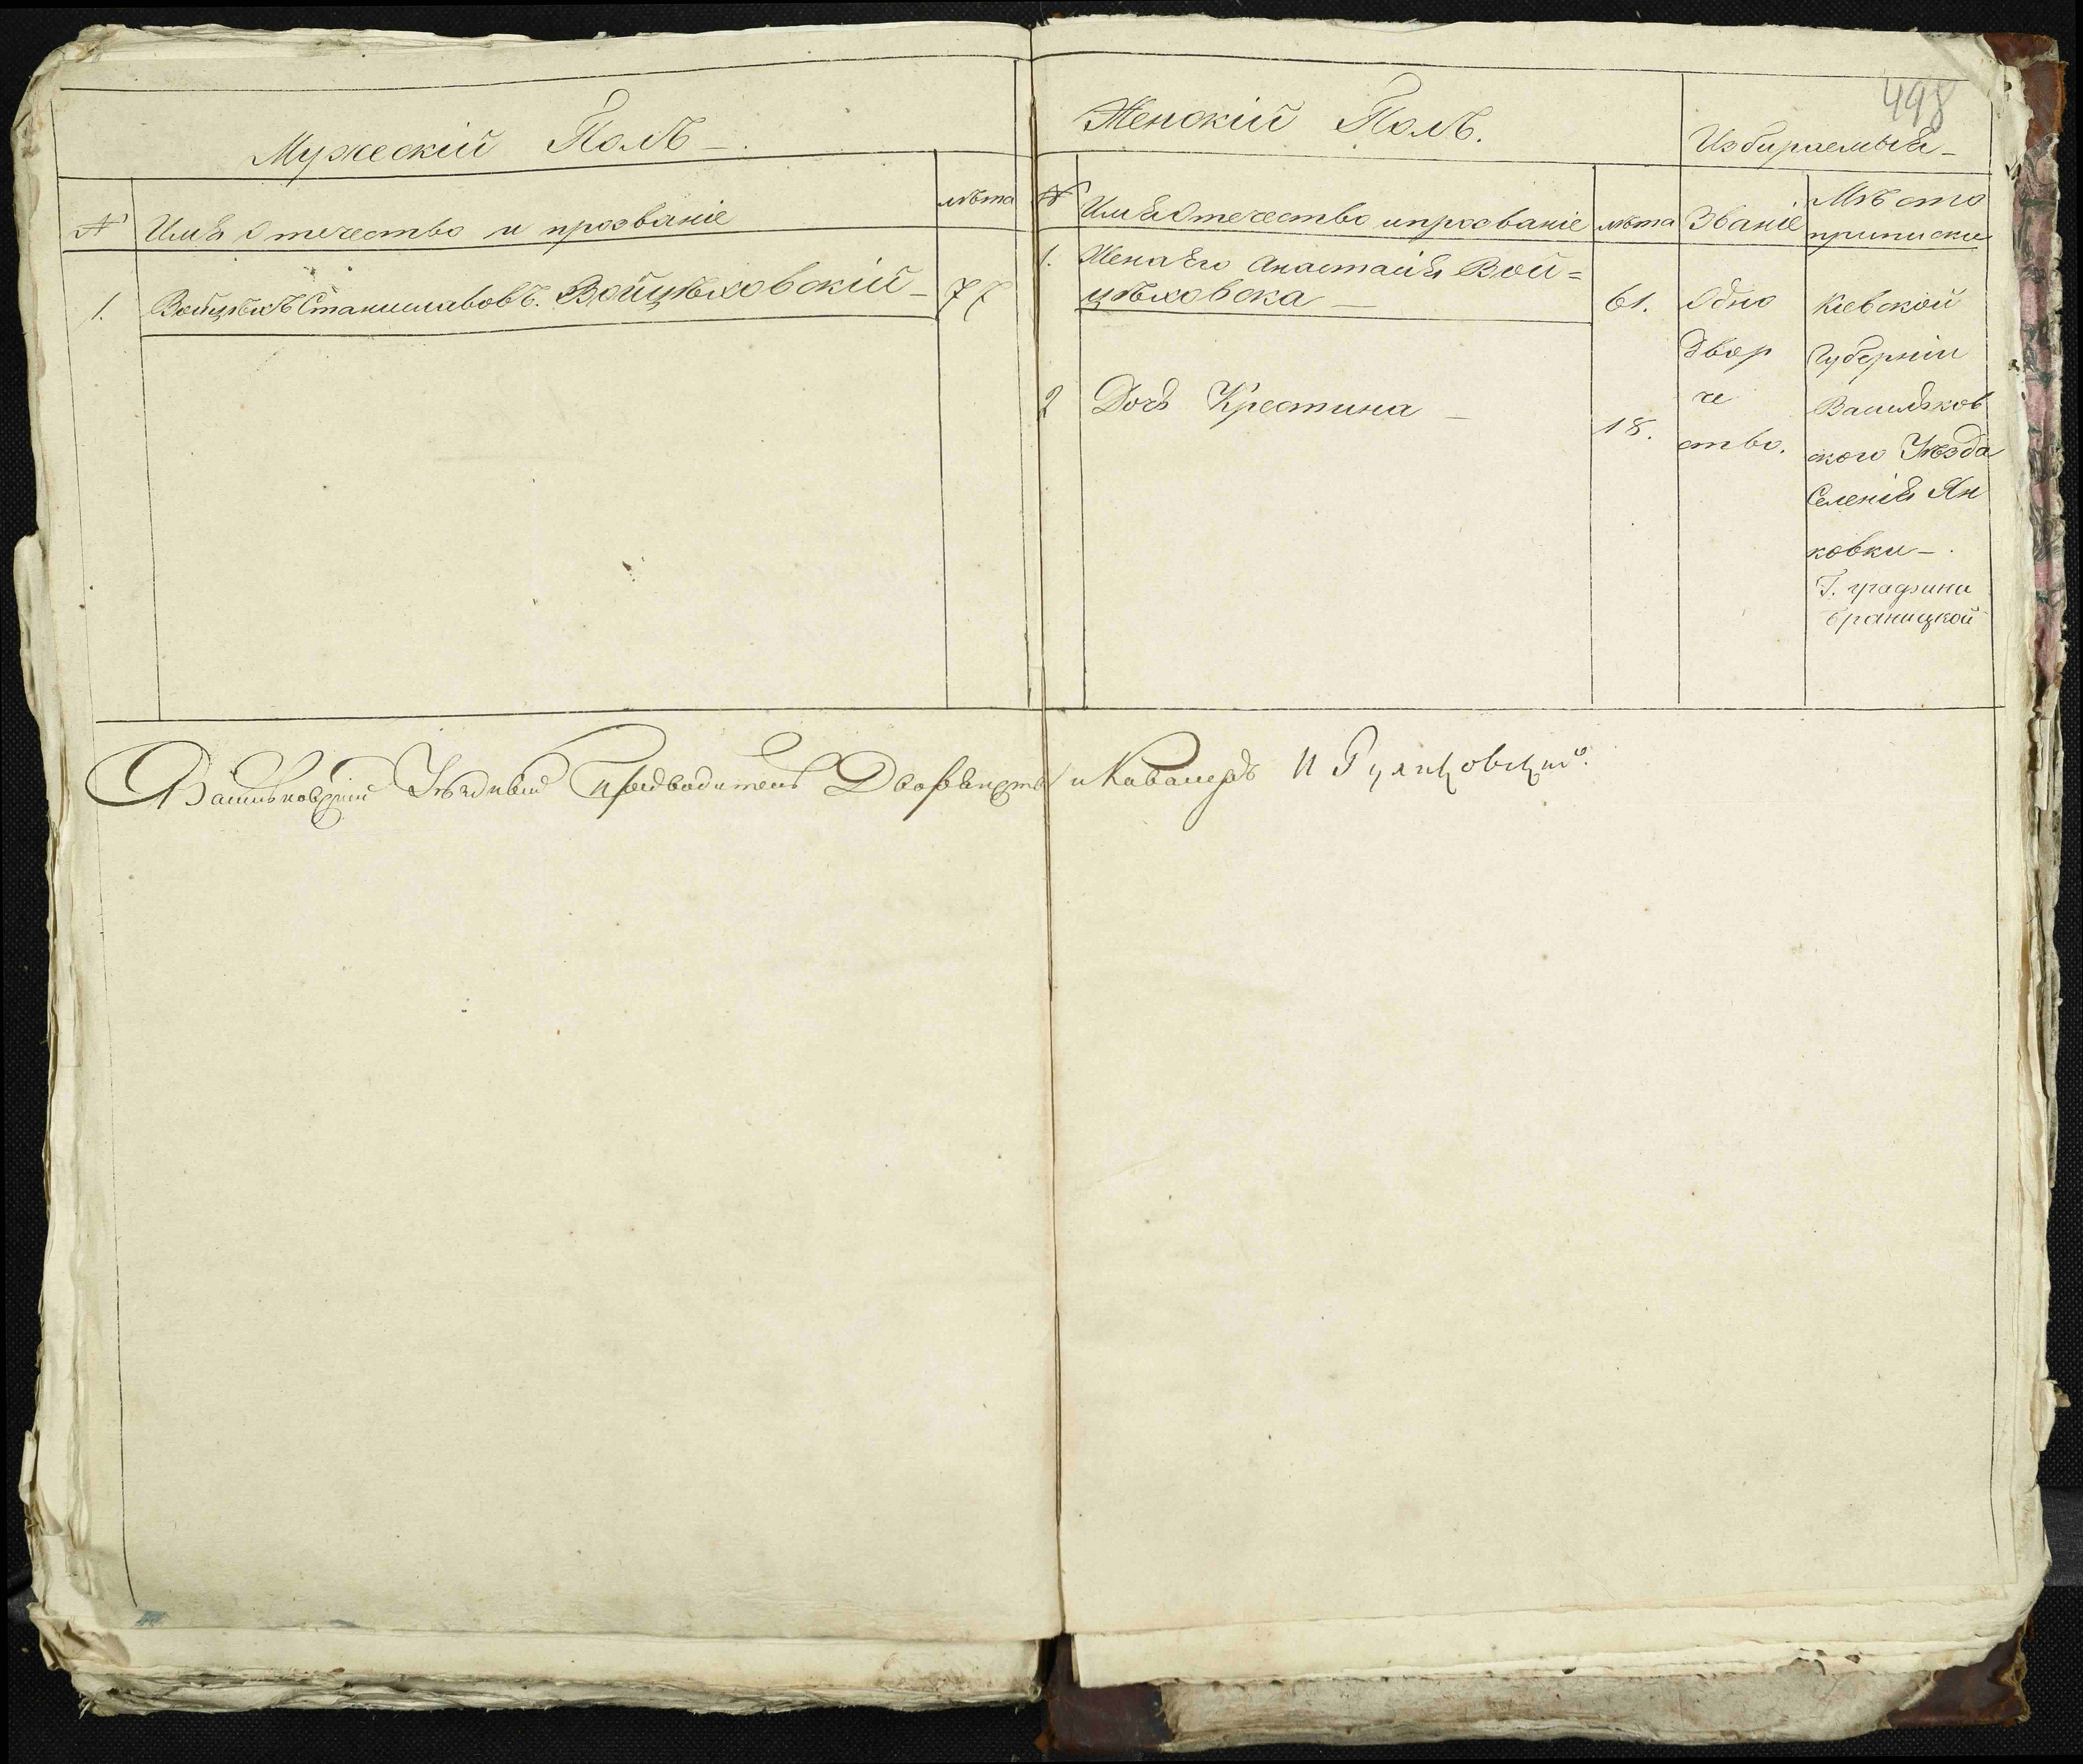 498
Мужескій Полъ –.
№ Имя Отчество и прозваніе лѣта
1. Войцѣхъ Станиславовъ. Войцѣховскій – 77
Женскій Полъ.
Избираемыя –
№ Имя Отечество и прозваніе лѣта Званіе Мѣсто
приписки
1. Жена Его Анастасія Вой=
цѣховска — 61.
2 Дочь Крестина – 18.
Одно
двор
че
ство.
Кіевской
Губерніи
Васильков
ского Уѣзда
Селенія Ян
ковки –.
Г. графини
браницкой
Васильковскій Уѣздный Предводитель Дворянства и Кавалеръ И Руликовскій.